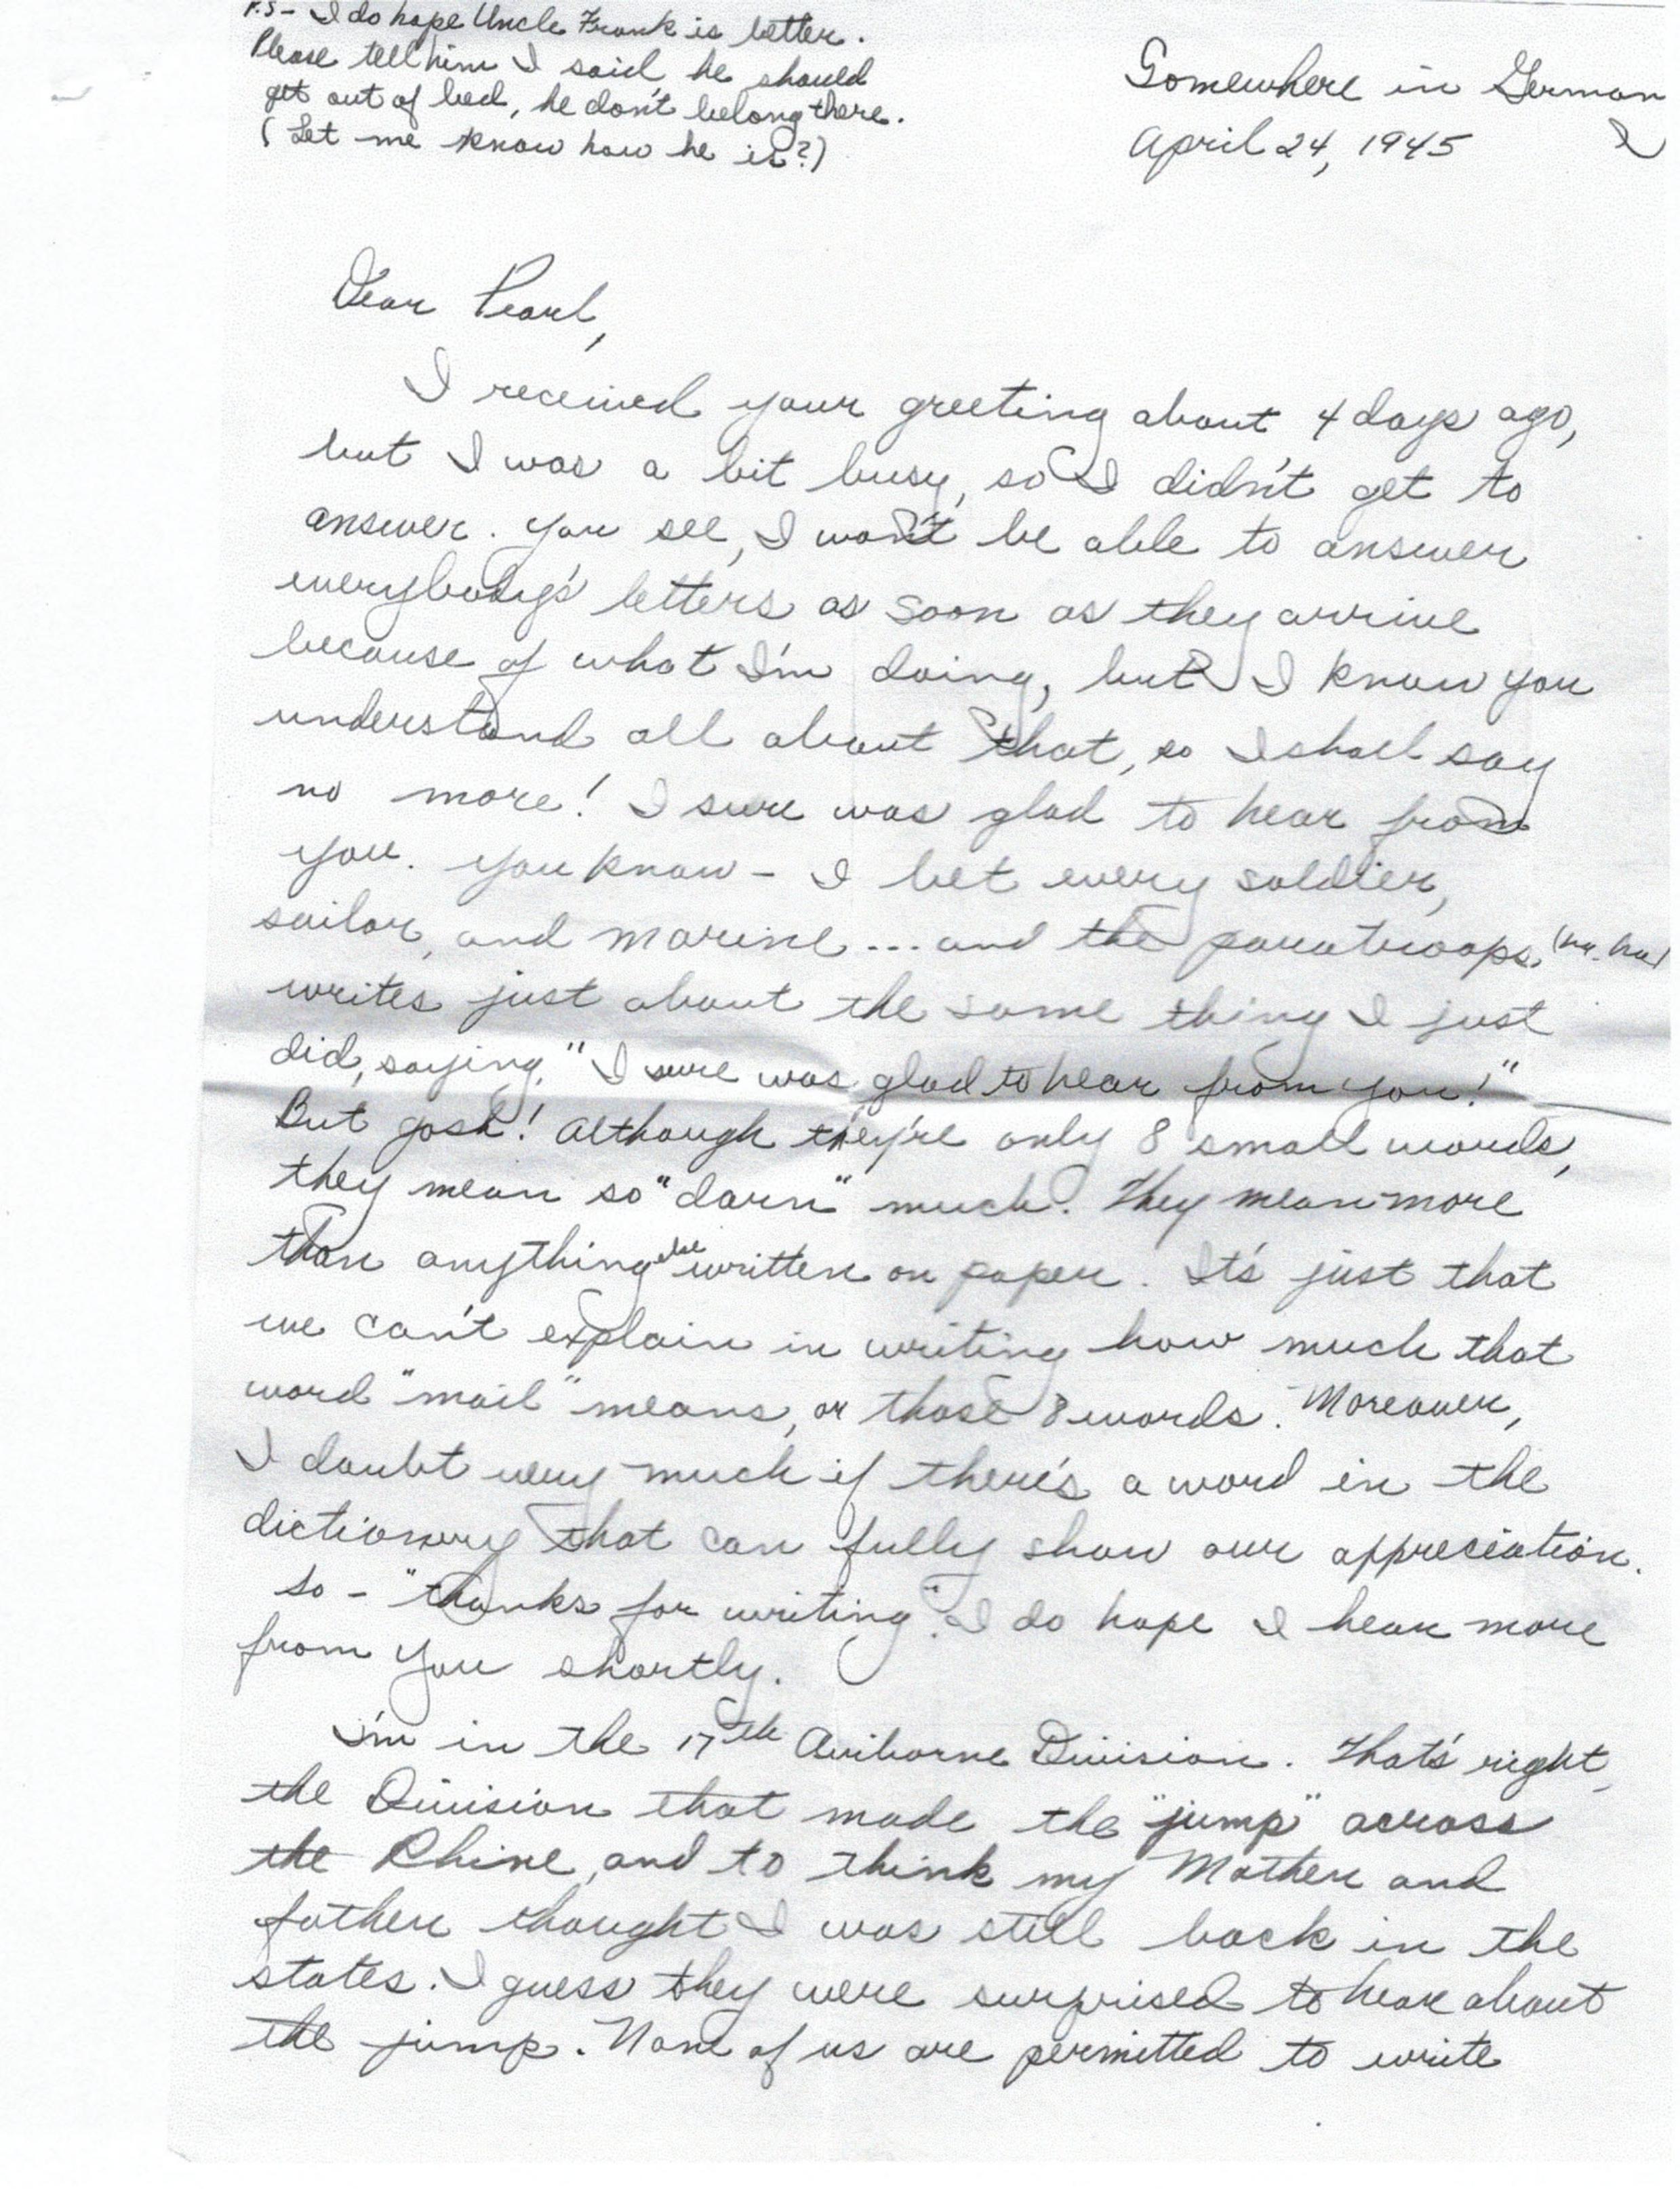 P.S - I do hope Uncle Frank is better.
Please tell him I said he should
get out of bed, he don't belong there.
(Let me know how he is?)
Somewhere in Germany
April 24, 1945
Dear Pearl,
I received your greeting about 4 days ago,
but I was a bit busy, so I didn't get to
answer. You see, I won't be able to answer
everybody's letters as soon as they arrive
because of what I'm doing, but I know you
understand all about that, so I shall say
no more! I sure was glad to hear from
you. You know - I bet every soldier,
sailor, and marine... and the paratroops, (ha-ha)
writes just about the same thing I just
did, saying, "I sure was glad to hear from you!"
But gosh! Although they're only 8 small words,
they mean so "darn" much. They mean more
than anything else written on paper. It's just that
we can't explain in writing how much that
word "mail" means, or those 8 words. Moreover,
I doubt very much if there's a word in the
dictionary that can fully show our appreciation.
So - "thanks for writing". I do hope I hear more
from you shortly.
I'm in the 17th Airborne Division. That's right,
the Division that made the "jump" across
the Rhine, and to think my Mother and
father thought I was still back in the
states. I guess they were surprised to hear about
the jump. None of us are permitted to write